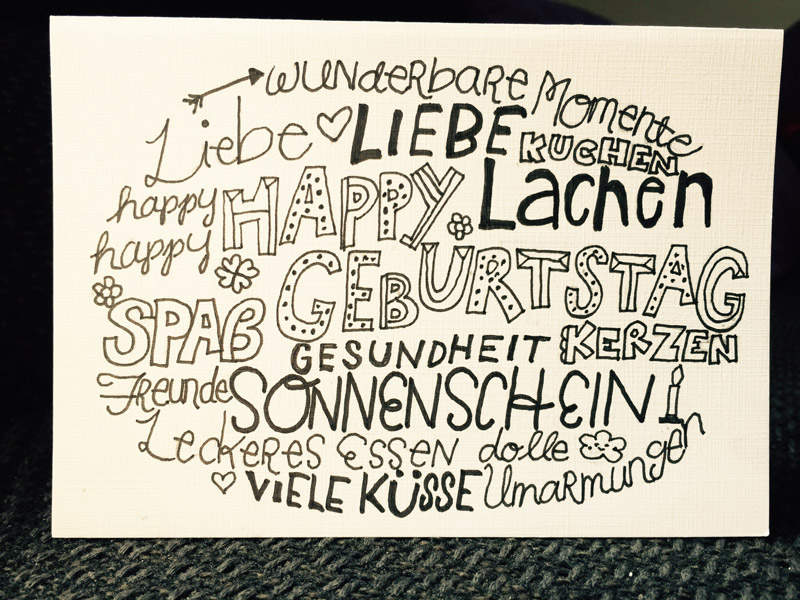 wunderbare Momente
Liebe LIEBE KUCHEN
happy HAPPY Lachen
happy GEBURTSTAG
SPAß GESUNDHEIT KERZEN
Freunde SONNENSCHEIN
Leckeres Essen dolle Umarmungen
VIELE KÜSSE